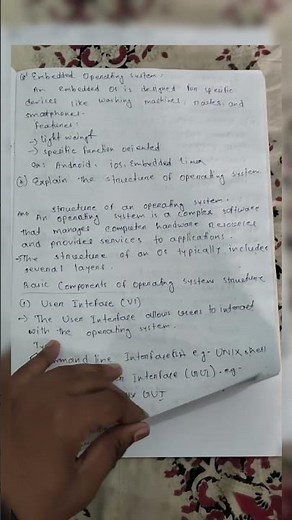 Embedded Operating System.
An embedded OS is designed for specific
devices like washing machines, routers, and
smartphones.
Features:
→ Light weight
→ specific function oriented
Ex: Android, iOS, Embedded Linux
Explain the structure of operating system
Ans structure of an operating system.
→ An operating system is a complex software
that manages computer hardware resources
and provides services to applications.
→ The structure of an OS typically includes
several layers.
Basic Components of Operating System Structure
(1) User Interface (UI)
→ The User Interface allows users to interact
with the operating system.
mmand line Interface e.g- UNIX shell
Interface (GUI) - eg-
GUI